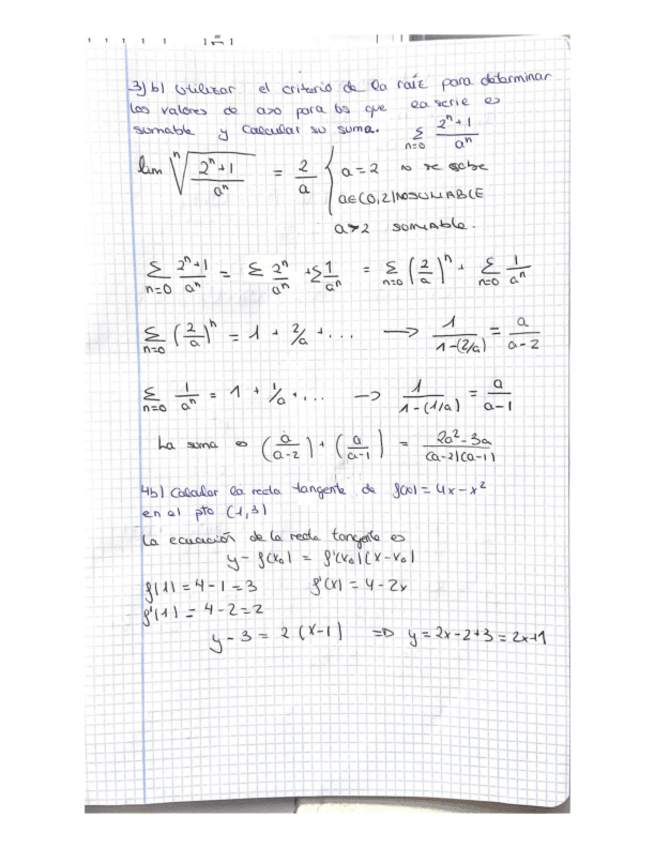 3) b) Utilizar el criterio de la raíz para determinar
los valores de a>0 para los que la serie es
sumable y calcular su suma. Σ n=0 (2^n+1)/a^n
lim ⁿ√((2^n+1)/a^n) = 2/a { a=2 no se sabe
a∈(0,2) NO SUMABLE
a>2 SUMABLE.
Σ n=0 (2^n+1)/a^n = Σ 2^n/a^n + Σ 1/a^n = Σ n=0 (2/a)^n + Σ n=0 1/a^n
Σ n=0 (2/a)^n = 1 + 2/a + ... → 1/(1-(2/a)) = a/(a-2)
Σ n=0 1/a^n = 1 + 1/a + ... → 1/(1-(1/a)) = a/(a-1)
La suma es (a/(a-2)) + (a/(a-1)) = (2a²-3a)/((a-2)(a-1))
4b) Calcular la recta tangente de f(x) = 4x-x²
en el pto (1,3)
La ecuación de la recta tangente es
y - f(x₀) = f'(x₀)(x-x₀)
f(1) = 4-1 = 3 f'(x) = 4-2x
f'(1) = 4-2=2
y-3 = 2(x-1) => y = 2x-2+3 = 2x+1